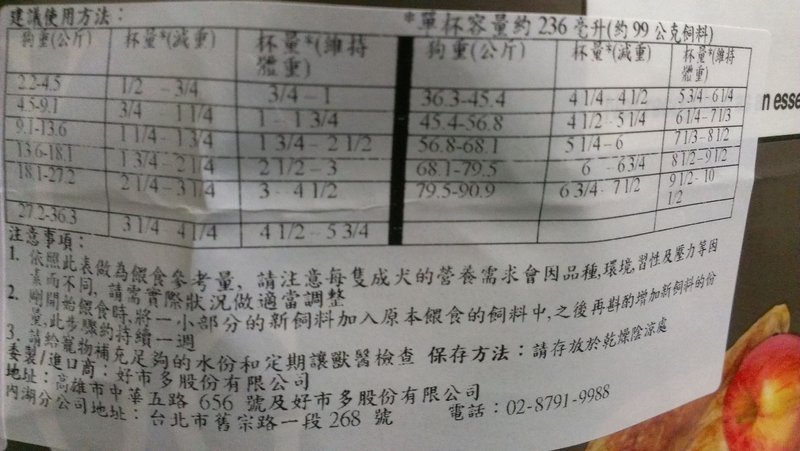 建議使用方法：
*單杯容量約 236 毫升(約 99 公克飼料)
狗重(公斤) 杯量*(減重) 杯量*(維持體重)
2.2-4.5 1/2 – 3/4 3/4 – 1
4.5-9.1 3/4 – 1 1/4 1 – 1 3/4
9.1-13.6 1 1/4 – 1 3/4 1 3/4 – 2 1/2
13.6-18.1 1 3/4 – 2 1/4 2 1/2 – 3
18.1-27.2 2 1/4 – 3 1/4 3 – 4 1/2
27.2-36.3 3 1/4 – 4 1/4 4 1/2 – 5 3/4
狗重(公斤) 杯量*(減重) 杯量*(維持體重)
36.3-45.4 4 1/4 – 4 1/2 5 3/4 – 6 1/4
45.4-56.8 4 1/2 – 5 1/4 6 1/4 – 7 1/3
56.8-68.1 5 1/4 – 6 7 1/3 – 8 1/2
68.1-79.5 6 – 6 3/4 8 1/2 – 9 1/2
79.5-90.9 6 3/4 – 7 1/2 9 1/2 – 10 1/2
注意事項：
1. 依照此表做為餵食參考量, 請注意每隻成犬的營養需求會因品種,環境,習性及壓力等因
素而不同, 請需實際狀況做適當調整
2. 剛開始餵食時,將一小部分的新飼料加入原本餵食的飼料中,之後再斟酌增加新飼料的份
量,此步驟約持續一週
3. 請給寵物補充足夠的水份和定期讓獸醫檢查 保存方法：請存放於乾燥陰涼處
委製/進口商：好市多股份有限公司
地址：高雄市中華五路 656 號及好市多股份有限公司
內湖分公司地址：台北市舊宗路一段 268 號 電話：02-8791-9988
n esse